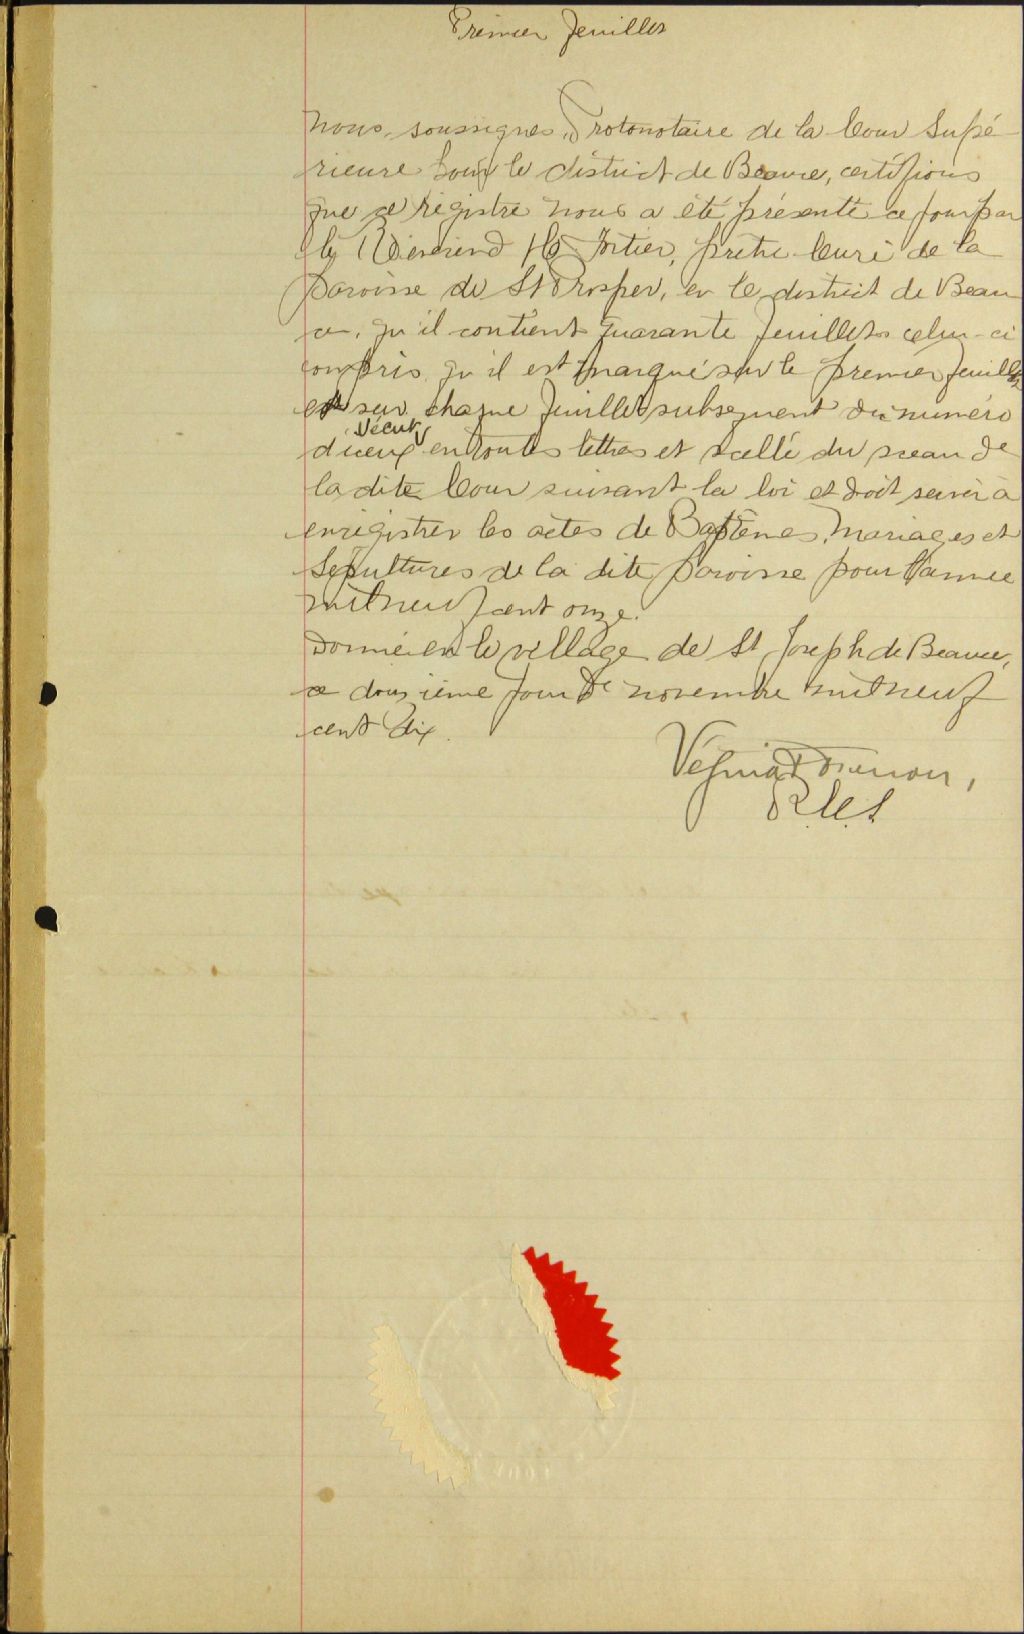 Premier feuillet
Nous, soussignés, Protonotaire de la Cour Supé-
rieure pour le district de Beauce, certifions
que ce régistre nous a été présenté ce jour par
le Révérend Fortier, prêtre Curé de la
paroisse de St Prosper, en le district de Beau
ce, qu'il contient quarante feuillets celui-ci
compris, qu'il est marqué sur le premier feuillet
et sur chaque feuillet subséquent du numéro
d'iceux en toutes lettres et scellé du sceau de
la dite Cour suivant la loi et doit servir à
enrégistrer les actes de Baptêmes, Mariages et
Sépultures de la dite paroisse pour l'année
mil neuf cent onze.
Donné en le village de St Joseph de Beauce,
ce douzième jour de novembre mil neuf
cent dix.
Vézina
P.C.S.